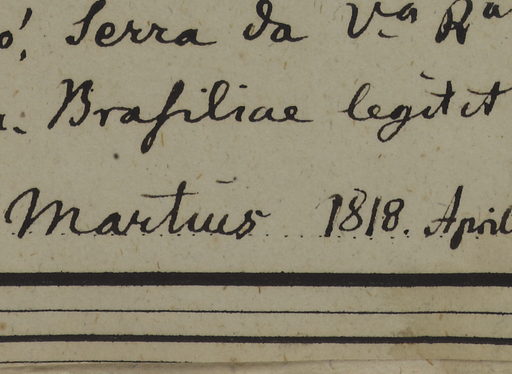 o! Serra da Vª Rª
Braſiliae legit et
Martius 1818. April